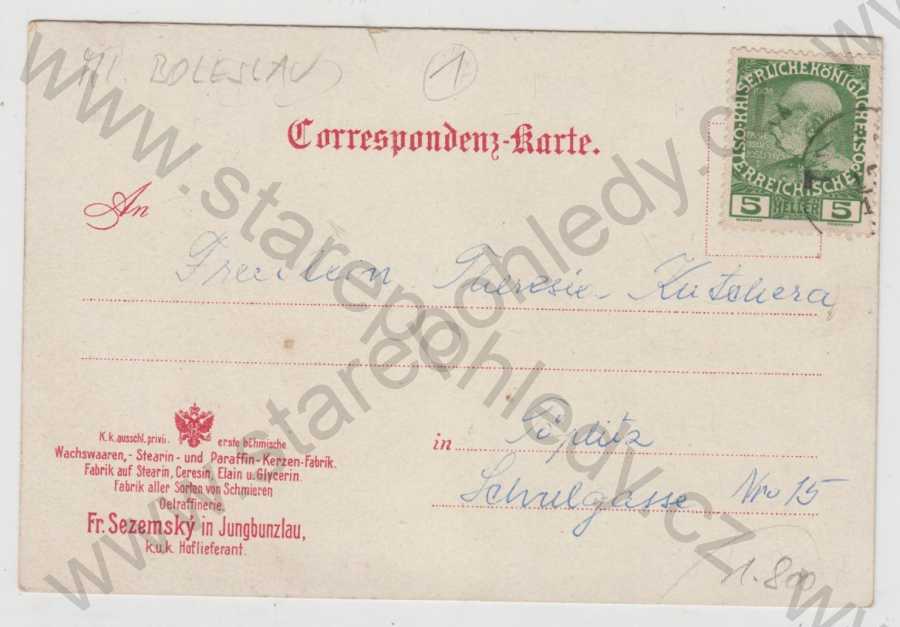 Ml. BOLESLAV
1
Correspondenz-Karte.
An
Fräulein Theresie Kutschera
in Töplitz
Schulgasse Nro 15
K.k. ausschl. privil. erste böhmische
Wachswaaren,- Stearin- und Paraffin-Kerzen-Fabrik.
Fabrik auf Stearin, Ceresin, Elain u. Glycerin.
Fabrik aller Sorten von Schmieren
Oelraffinerie.
Fr. Sezemský in Jungbunzlau,
k.u.k. Hoflieferant.
1.800
KAISERLICHEKÖNIGLICHE
ÖSTERREICHISCHE
5 HELLER 5
www.starepohledy.cz